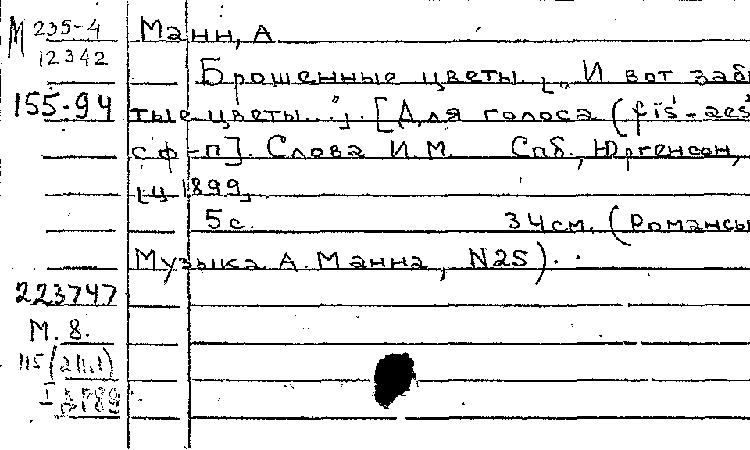 М 235-4
12342
155-94
Манн, А
Брошенные цветы. [„И вот забы
тые цветы..."]. [Для голоса (fis¹-aes
с ф-п]. Слова И.М. Спб., Юргенсон,
[ц 1899]
5 с. 34 см. (Романсы
Музыка А. Манна, N25).
223747
М. 8.